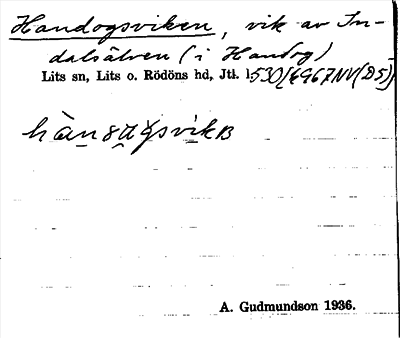 Handogsviken, vik av In-
dalsälven (i Handog)
Lits sn, Lits o. Rödöns hd, Jtl. 1530[6967NV(D5)]
A. Gudmundson 1936.